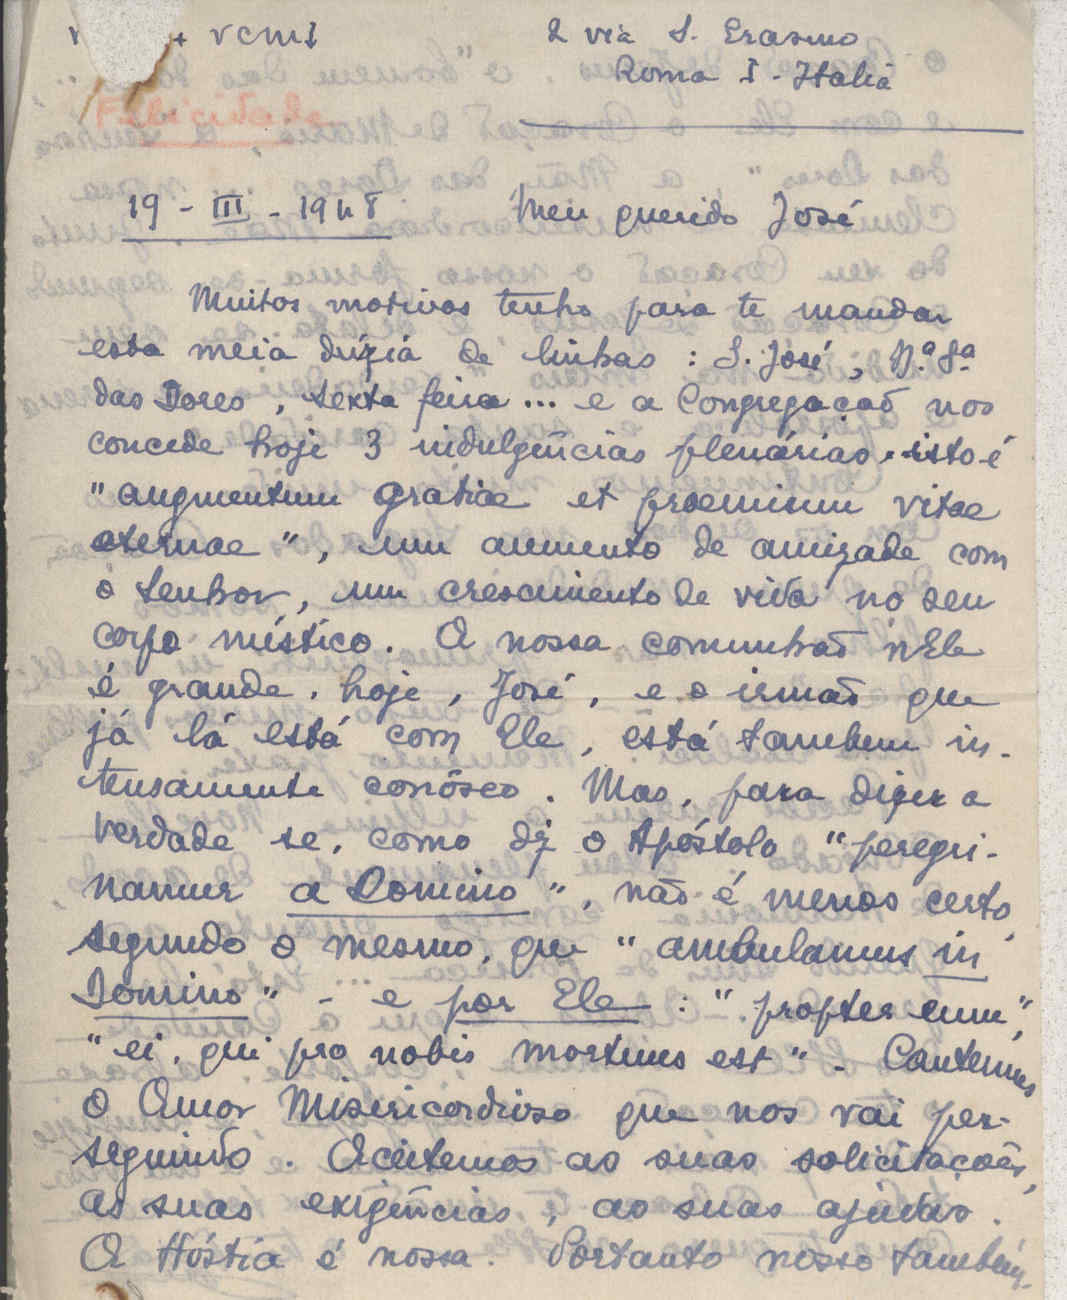 + VCMJ
2 via S. Erasmo
Roma I - Italia
Felicidade
19 - III - 1948 Meu querido José
Muitos motivos tenho para te mandar
esta meia dúzia de linhas : S. José, N.ª S.ª
das Dores, sexta feira ... e a Congregação nos
concede hoje 3 indulgências plenárias, isto é
"augmentum gratiae et praemium vitae
aternae", um aumento de amizade com
o Senhor, um crescimento de vida no seu
corpo místico. A nossa comunhão n'Ele
é grande, hoje, José, e o irmão que
já lá está com Ele, está tambem in-
tensamente conôsco. Mas, para dizer a
verdade se, como diz o Apóstolo "peregri-
namur a Domino", não é menos certo,
segundo o mesmo, que "ambulamus in
Domino" - e por Ele : "propter eum",
"ei, qui pro nobis mortuus est" - Cantemos
o Amor Misericordioso que nos vai per-
seguindo. Aceitemos as suas solicitações,
as suas exigências, as suas ajudas.
A Hóstia é nossa. Portanto nosso tambem